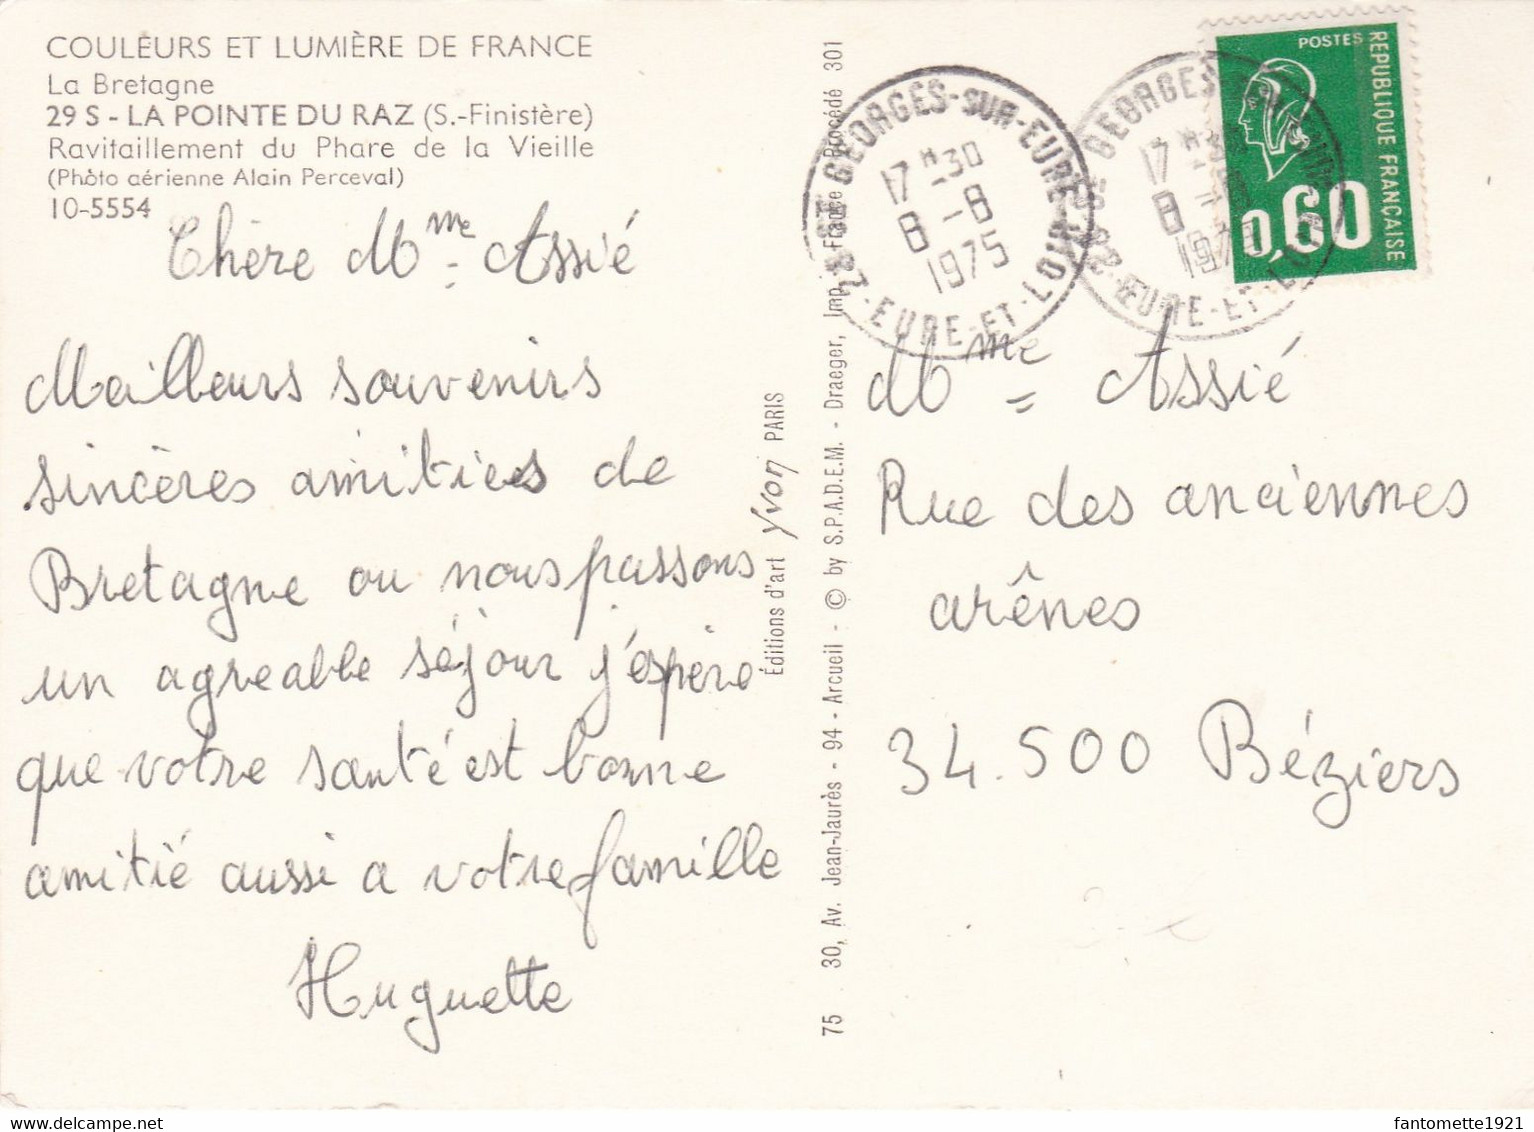 COULEURS ET LUMIÈRE DE FRANCE
La Bretagne
29 S - LA POINTE DU RAZ (S.-Finistère)
Ravitaillement du Phare de la Vieille
(Photo aérienne Alain Perceval)
10-5554
Chère Mme Assié
Meilleurs souvenirs
sincères amitiés de
Bretagne ou nous passons
un agreable séjour j'espère
que votre santé est bonne
amitié aussi a votre famille
Huguette
Éditions d'art Yvon PARIS
75 30, Av. Jean-Jaurès - 94 - Arcueil - © by S.P.A.D.E.M. - Draeger, Imp. France Procédé 301
28 ST GEORGES-SUR-EURE
17 H 30
8 - 8
1975
EURE-ET-LOIR
POSTES
REPUBLIQUE FRANÇAISE
0,60
Mme Assié
Rue des anciennes
arênes
34.500 Béziers
fantomette1921